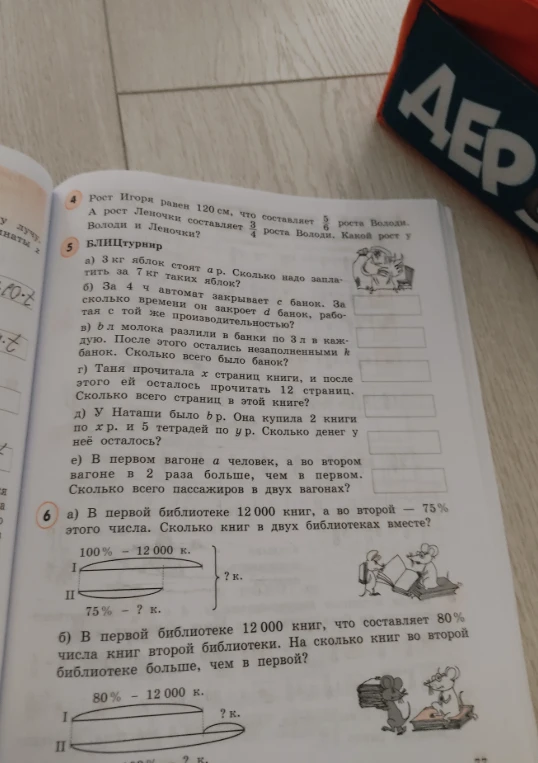 ДЕР
у лучу.
4 Рост Игоря равен 120 см, что составляет 5/6 роста Володи.
А рост Леночки составляет 3/4 роста Володи. Какой рост у
Володи и Леночки?
5 БЛИЦтурнир
а) 3 кг яблок стоят a р. Сколько надо запла-
тить за 7 кг таких яблок?
б) За 4 ч автомат закрывает c банок. За
сколько времени он закроет d банок, рабо-
тая с той же производительностью?
в) b л молока разлили в банки по 3 л в каж-
дую. После этого остались незаполненными k
банок. Сколько всего было банок?
г) Таня прочитала x страниц книги, и после
этого ей осталось прочитать 12 страниц.
Сколько всего страниц в этой книге?
д) У Наташи было b р. Она купила 2 книги
по x р. и 5 тетрадей по y р. Сколько денег у
неё осталось?
е) В первом вагоне a человек, а во втором
вагоне в 2 раза больше, чем в первом.
Сколько всего пассажиров в двух вагонах?
6 а) В первой библиотеке 12 000 книг, а во второй — 75%
этого числа. Сколько книг в двух библиотеках вместе?
100% – 12 000 к.
I
? к.
II
75% – ? к.
б) В первой библиотеке 12 000 книг, что составляет 80%
числа книг второй библиотеки. На сколько книг во второй
библиотеке больше, чем в первой?
80% – 12 000 к.
I
? к.
II
? к.